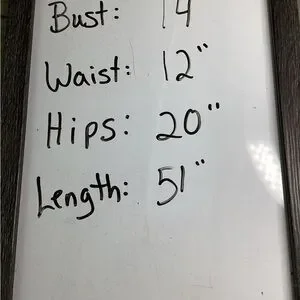 Bust: 14
Waist: 12"
Hips: 20"
Length: 51"